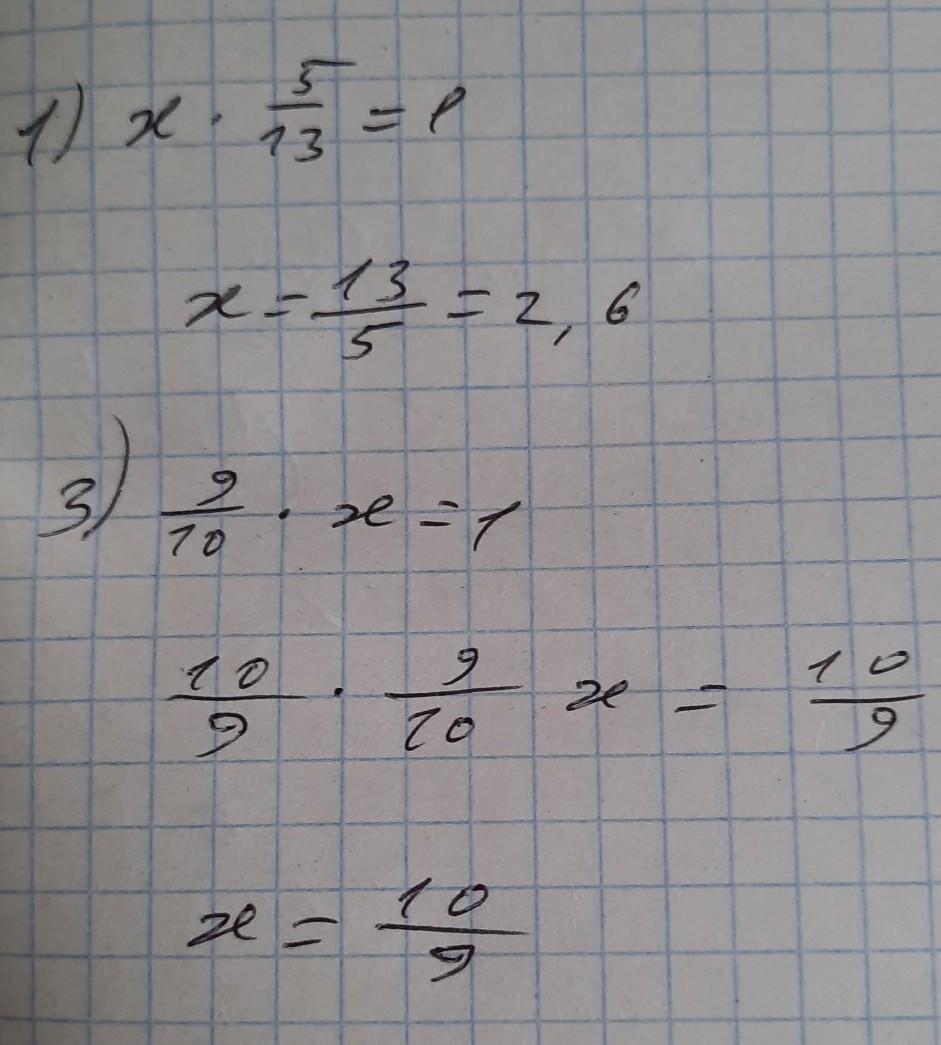 1) x · 5/13 = 1
x = 13/5 = 2,6
3) 9/10 · x = 1
10/9 · 9/10 x = 10/9
x = 10/9